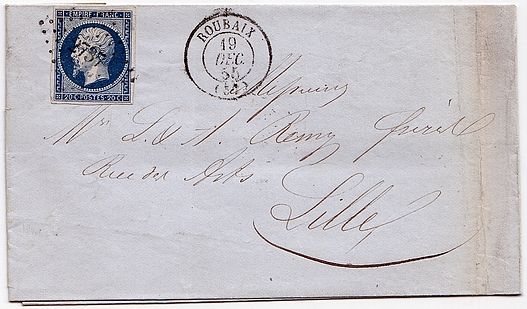 EMPIRE FRANC.
20 C POSTES 20 C
ROUBAIX
19
DEC.
55
(57)
Messieurs
L. & A. Remy
Rue des Arts
Lille